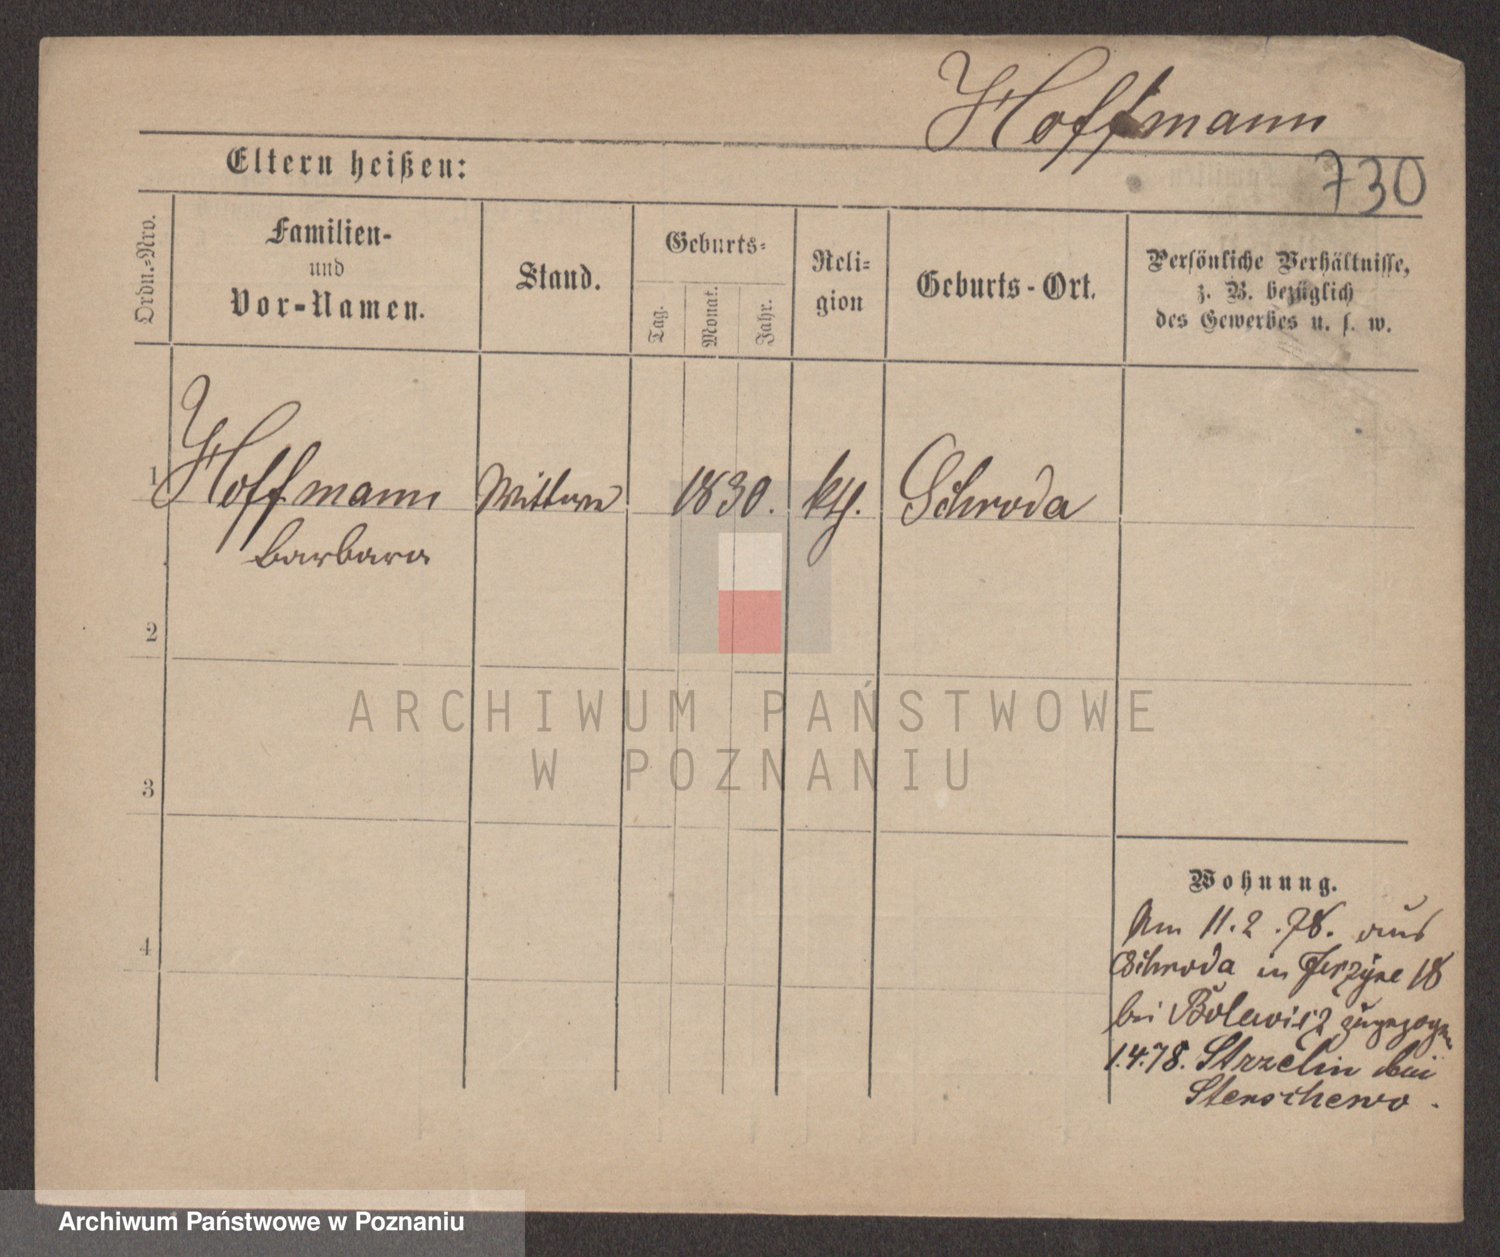 Hoffmann
730
Eltern heißen:
Ordn.-Nro.
Familien-
und
Vor-Namen.
Stand.
Geburts-
Tag.
Monat.
Jahr.
Reli-
gion
Geburts-Ort.
Persönliche Verhältnisse,
z. B. bezüglich
des Gewerbes u. s. w.
1 Hoffmann Wittwe 1830. kth. Schroda
Barbara
2
3
4
Wohnung.
Am 11.2.78. aus
Schroda in Jerzyce 18
bei Bolewicz zugezogen
1.4.78. Strzelin bei
Stenschewo.
ARCHIWUM PAŃSTWOWE
W POZNANIU
Archiwum Państwowe w Poznaniu